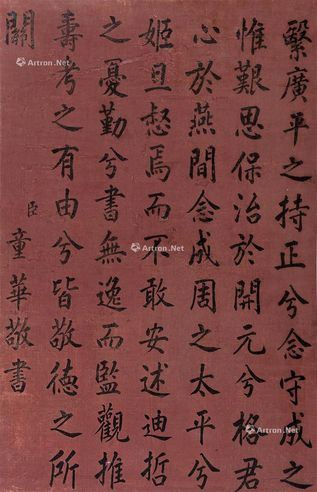 繄廣平之持正兮念守成之
惟艱思保治於開元兮格君
心於燕間念成周之太平兮
姬旦愸焉而不敢安述迪哲
之憂勤兮書無逸而監觀推
壽考之有由兮皆敬德之所
關
臣童華敬書
Artron.Net
Artron.Net
Artron.Net
Artron.Net
Artron.Net